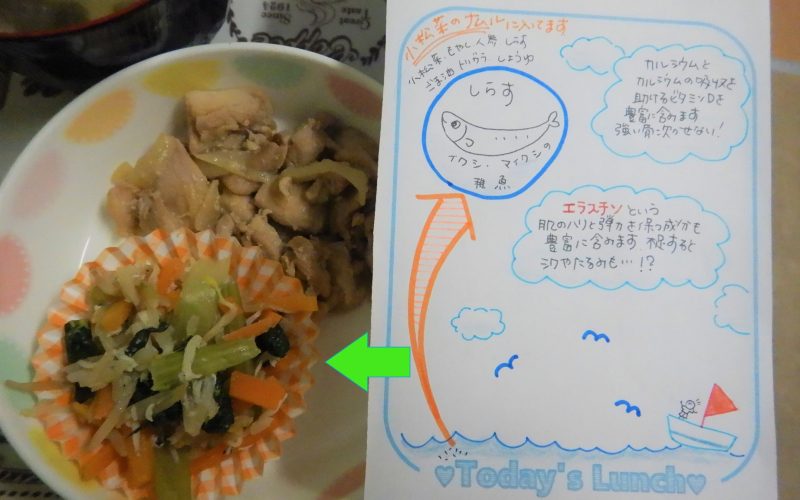 Since
1924
Great
Taste
小松菜のナムルに入ってます
小松菜 もやし 人参 しらす
ごま油 トリガラ しょうゆ
しらす
イワシ・マイワシの
稚魚
カルシウムと
カルシウムの吸収を
助けるビタミンDを
豊富に含みます
強い骨に欠かせない!
エラスチンという
肌のハリと弾力を保つ成分も
豊富に含みます。不足すると
シワやたるみも…!?
♥Today's Lunch♥